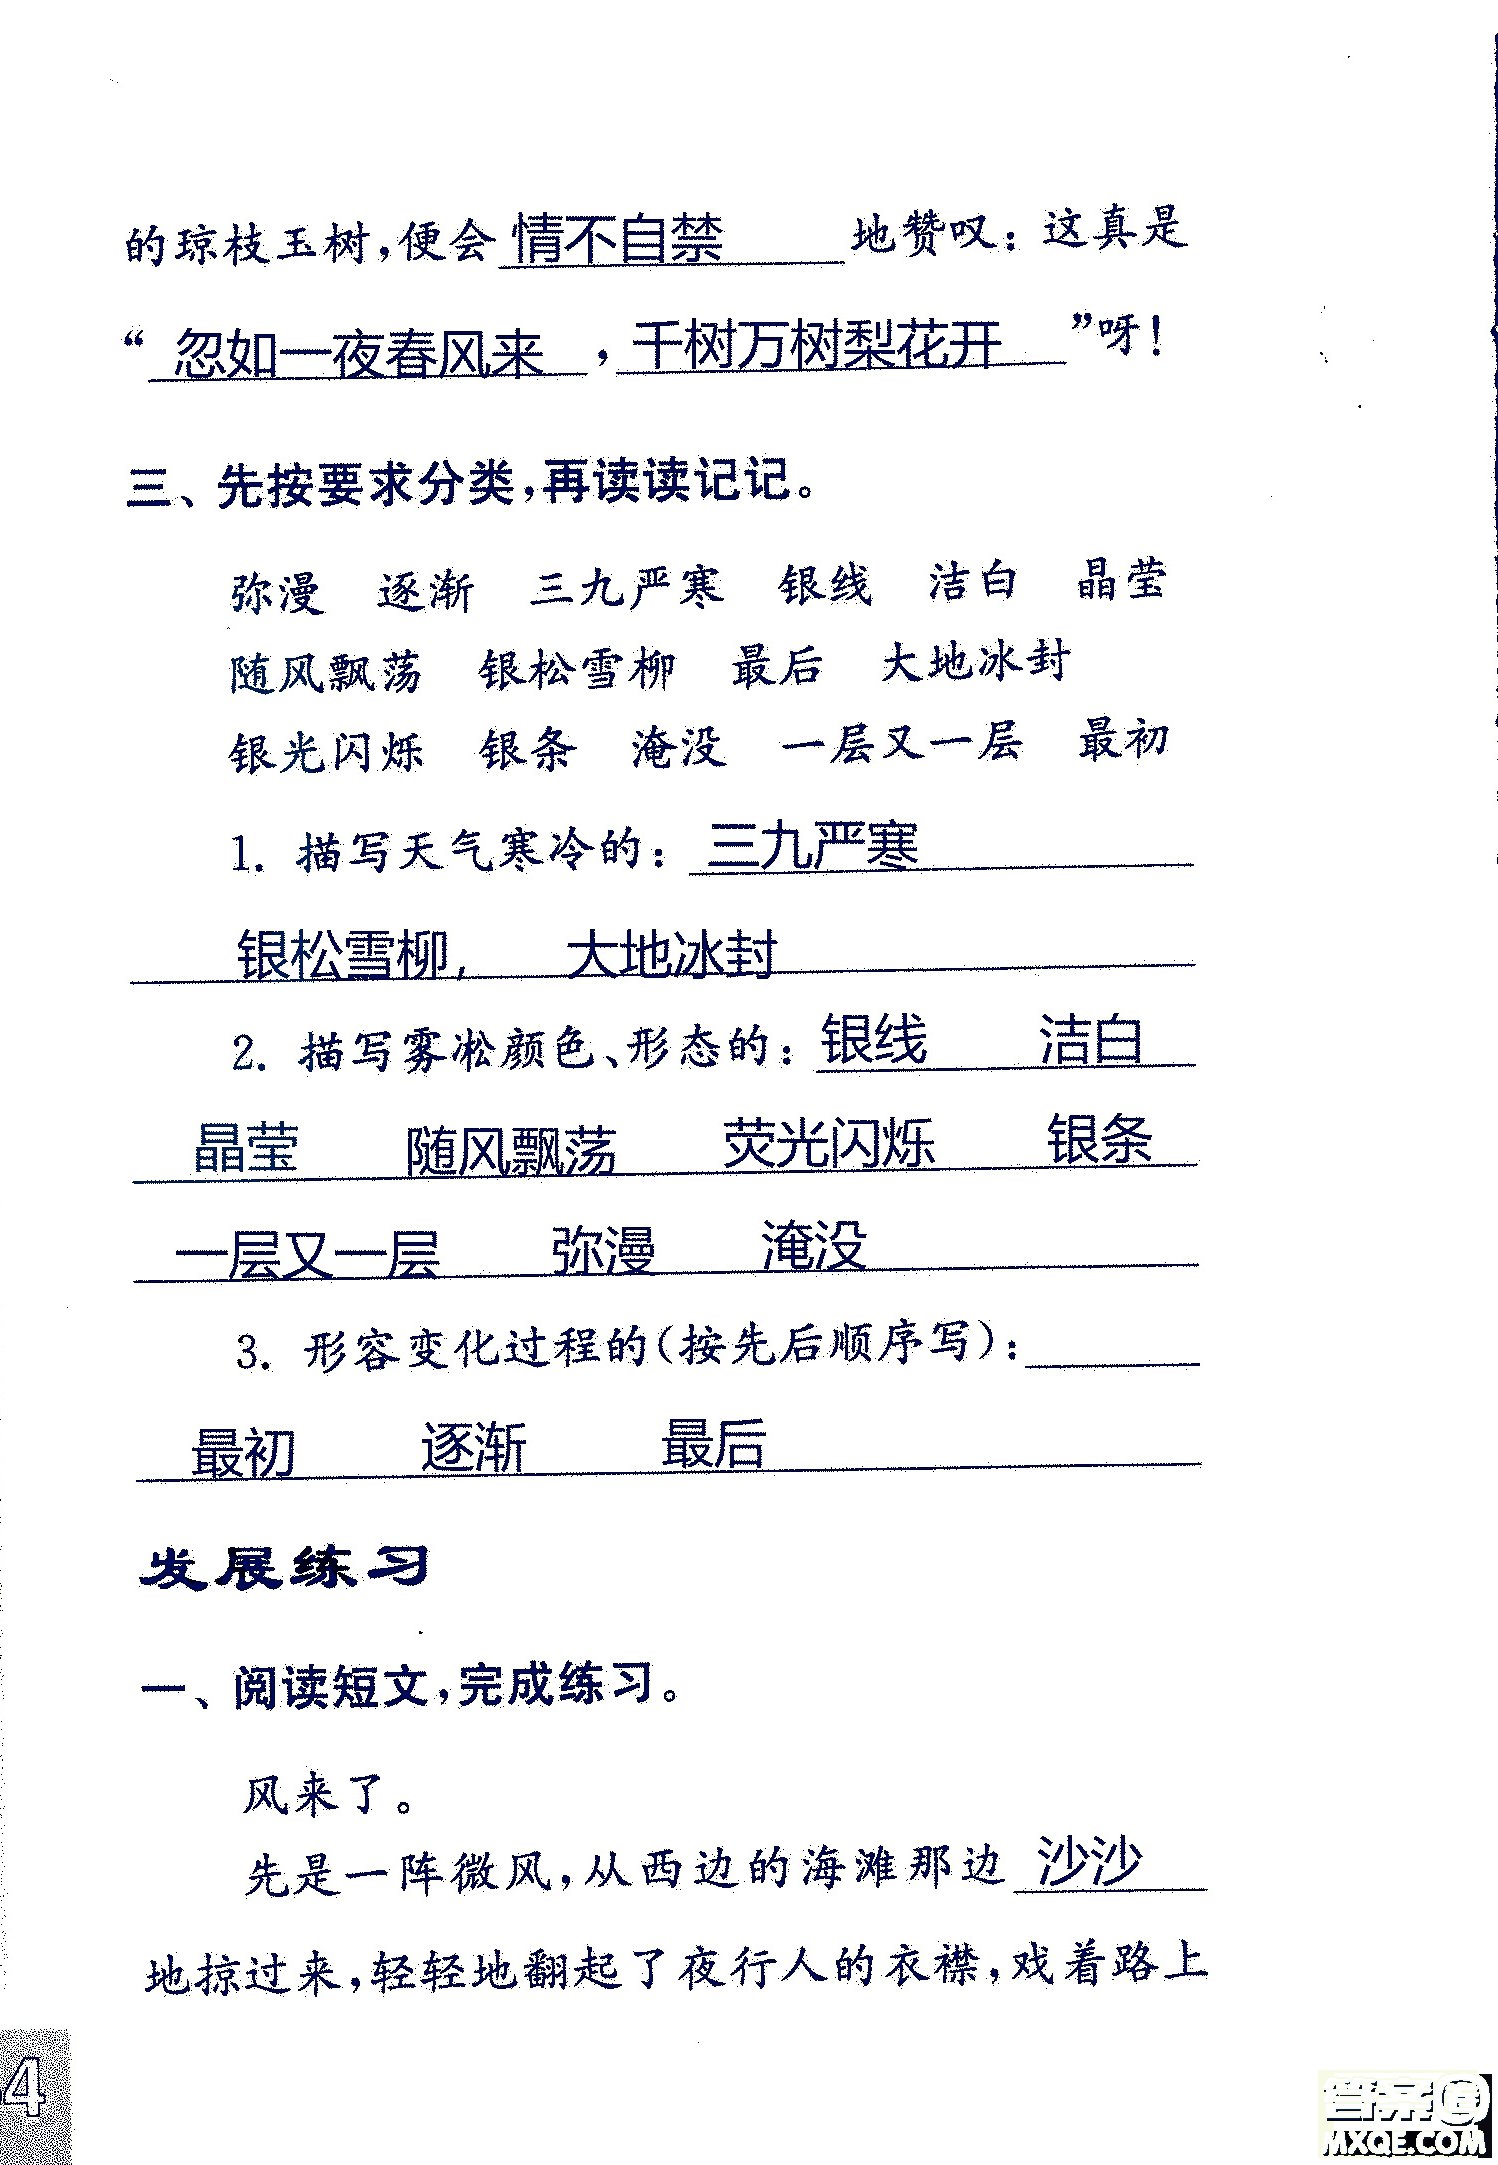 的琼枝玉树，便会 情不自禁 地赞叹：这真是
“ 忽如一夜春风来 ，千树万树梨花开 ”呀！
三、先按要求分类，再读读记记。
弥漫 逐渐 三九严寒 银线 洁白 晶莹
随风飘荡 银松雪柳 最后 大地冰封
银光闪烁 银条 淹没 一层又一层 最初
1. 描写天气寒冷的：三九严寒
银松雪柳， 大地冰封
2. 描写雾凇颜色、形态的：银线 洁白
晶莹 随风飘荡 荧光闪烁 银条
一层又一层 弥漫 淹没
3. 形容变化过程的（按先后顺序写）：
最初 逐渐 最后
发展练习
一、阅读短文，完成练习。
风来了。
先是一阵微风，从西边的海滩那边 沙沙
地掠过来，轻轻地翻起了夜行人的衣襟，戏着路上
4
答案圈
MXQE.COM